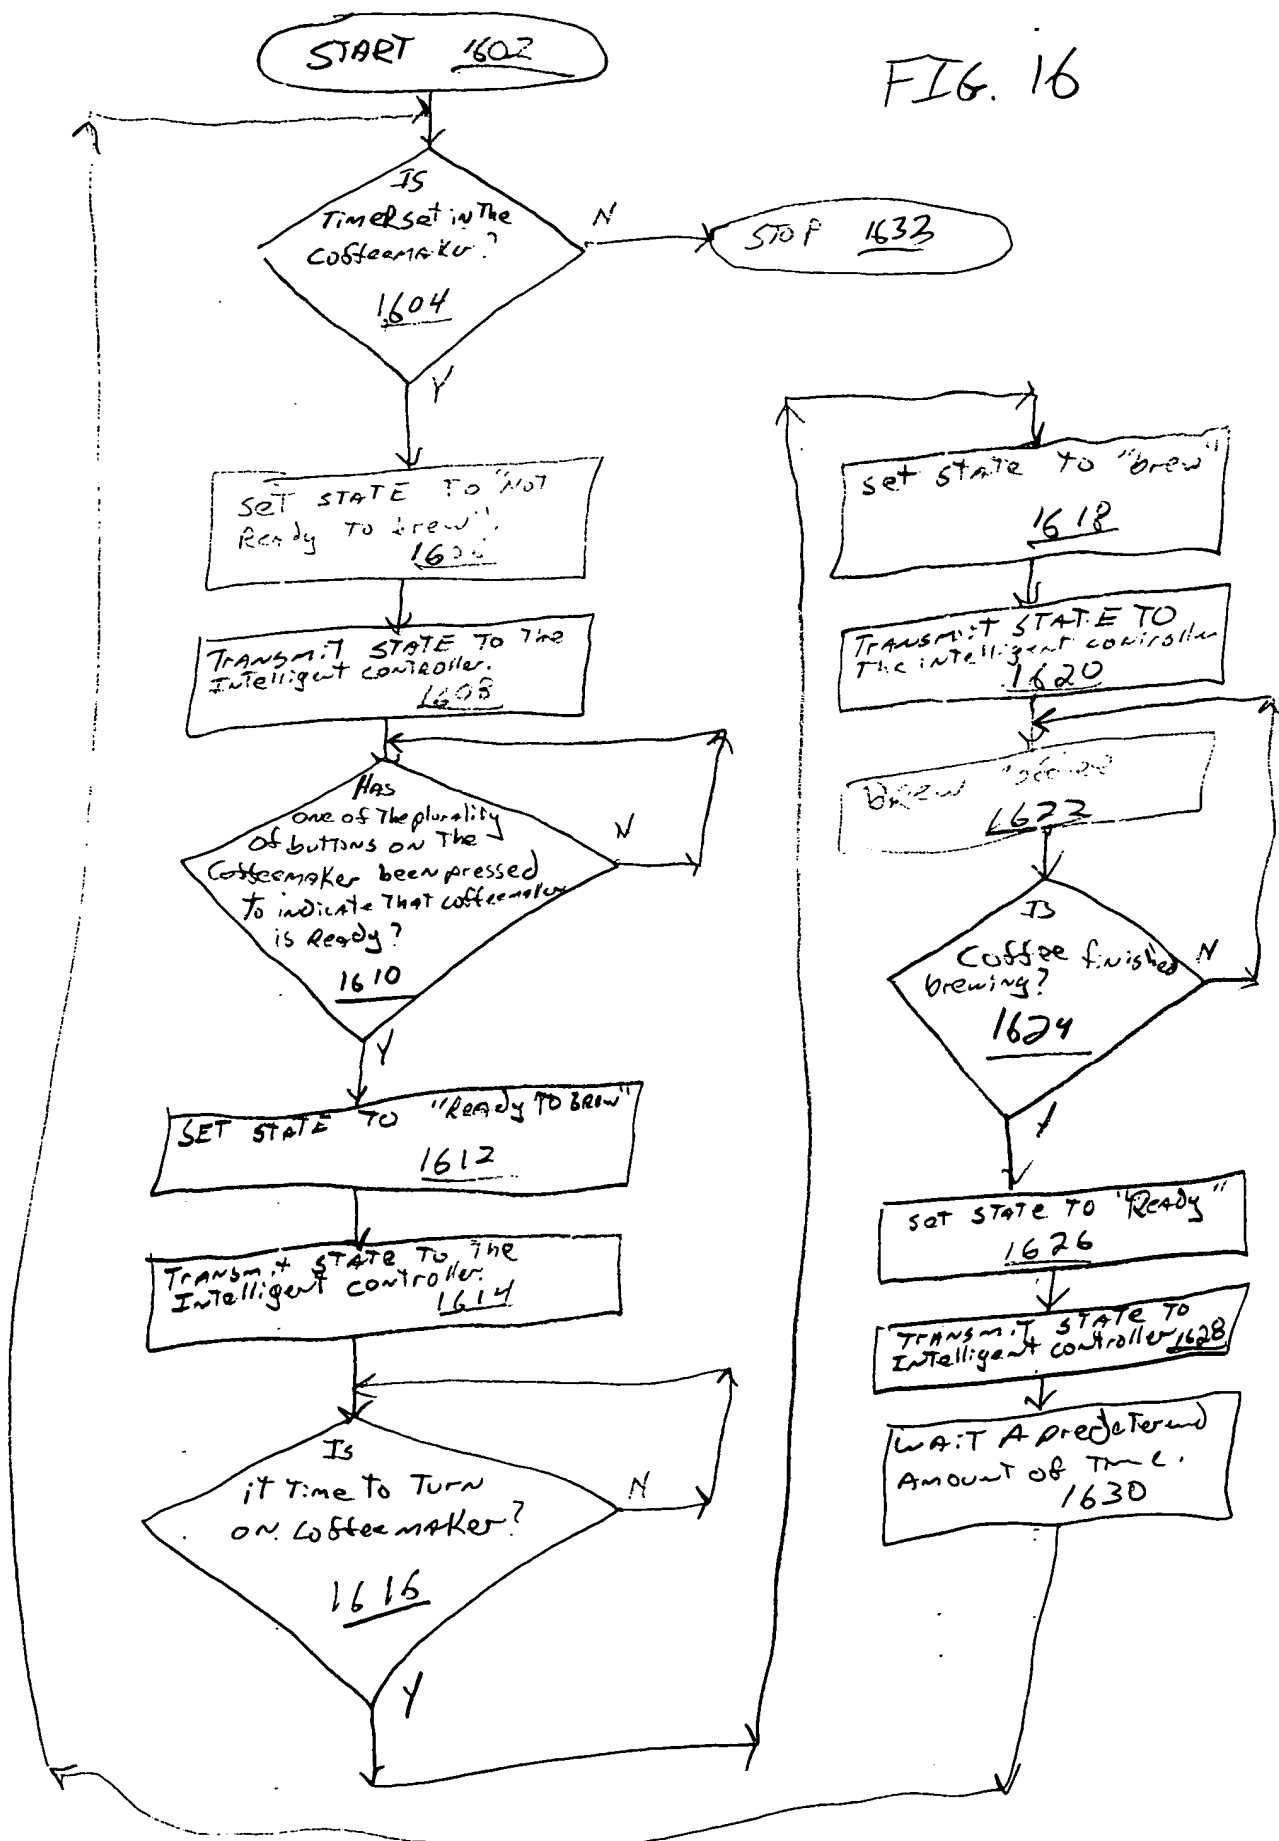 START 1602
FIG. 16
Is
Timer set in the
coffeemaker?
1604
N
STOP 1633
Y
Set STATE To "Not
Ready To brew".
1606
Transmit STATE To The
Intelligent controller.
1608
Has
one of The plurality
of buttons on The
Coffeemaker been pressed
To indicate That coffeemaker
is Ready?
1610
N
Y
SET STATE TO "Ready TO BREW"
1612
Transmit STATE To The
Intelligent controller.
1614
Is
it Time to Turn
on coffeemaker?
1616
N
Y
set STATE To "brew"
1618
Transmit STATE TO
The intelligent controller
1620
Brew coffee
1622
Is
Coffee finished
brewing?
1624
N
Y
set STATE TO "Ready"
1626
Transmit STATE TO
Intelligent controller 1628
WAIT A
Amount of Time.
1630